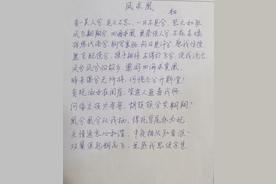 凤求凰
有一美人兮,见之不忘,一日不见兮,思之如狂
凤飞翱翔兮,四海求凰,无奈佳人兮,不在东墙
将琴代语兮,聊写衷肠,何日见许兮,慰我彷徨
愿言配德兮,携手相将,不得於飞兮,使我沦亡
凤兮凤兮归故乡,遨游四海求其凰
时未遇兮无所将,何悟今兮升斯堂
有艳淑女在闺房,室迩人遐毒我肠
何缘交颈为鸳鸯,胡颉颃兮共翱翔
凰兮凰兮从我栖,得托孳尾永为妃
交情通意心和谐,中夜相从知者谁
双翼俱起翻高飞,无感我思使余悲